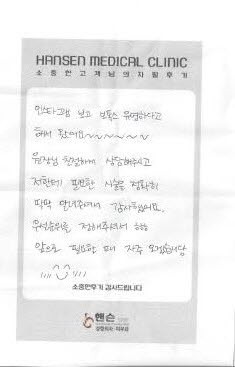 HANSEN MEDICAL CLINIC
소중한고객님의자필후기
인스타그램 보고 보톡스 유명하다고
해서 왔어요~~~~~~
원장님 친절하게 상담해주시고
저한테 필요한 시술을 정확히
딱딱 알려주셔서 감사했어요.
우선순위를 정해주셔서 ㅎㅎ
앞으로 필요한 때 자주 오겠습니당
소중한후기 감사드립니다
핸슨